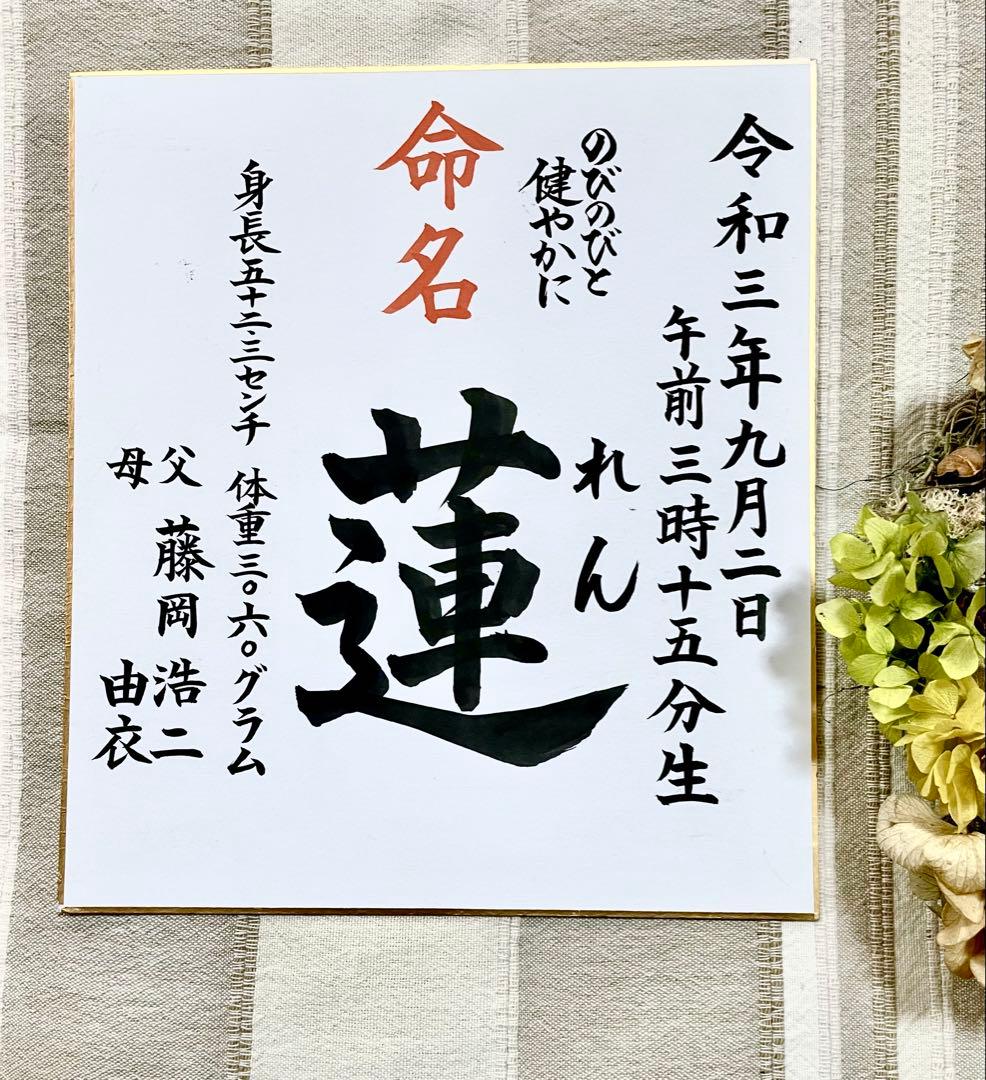 令和三年九月二日
午前三時十五分生
のびのびと
健やかに
命名
れん
蓮
身長五十二.三センチ 体重三〇六〇グラム
父 藤岡 浩二
母 由衣